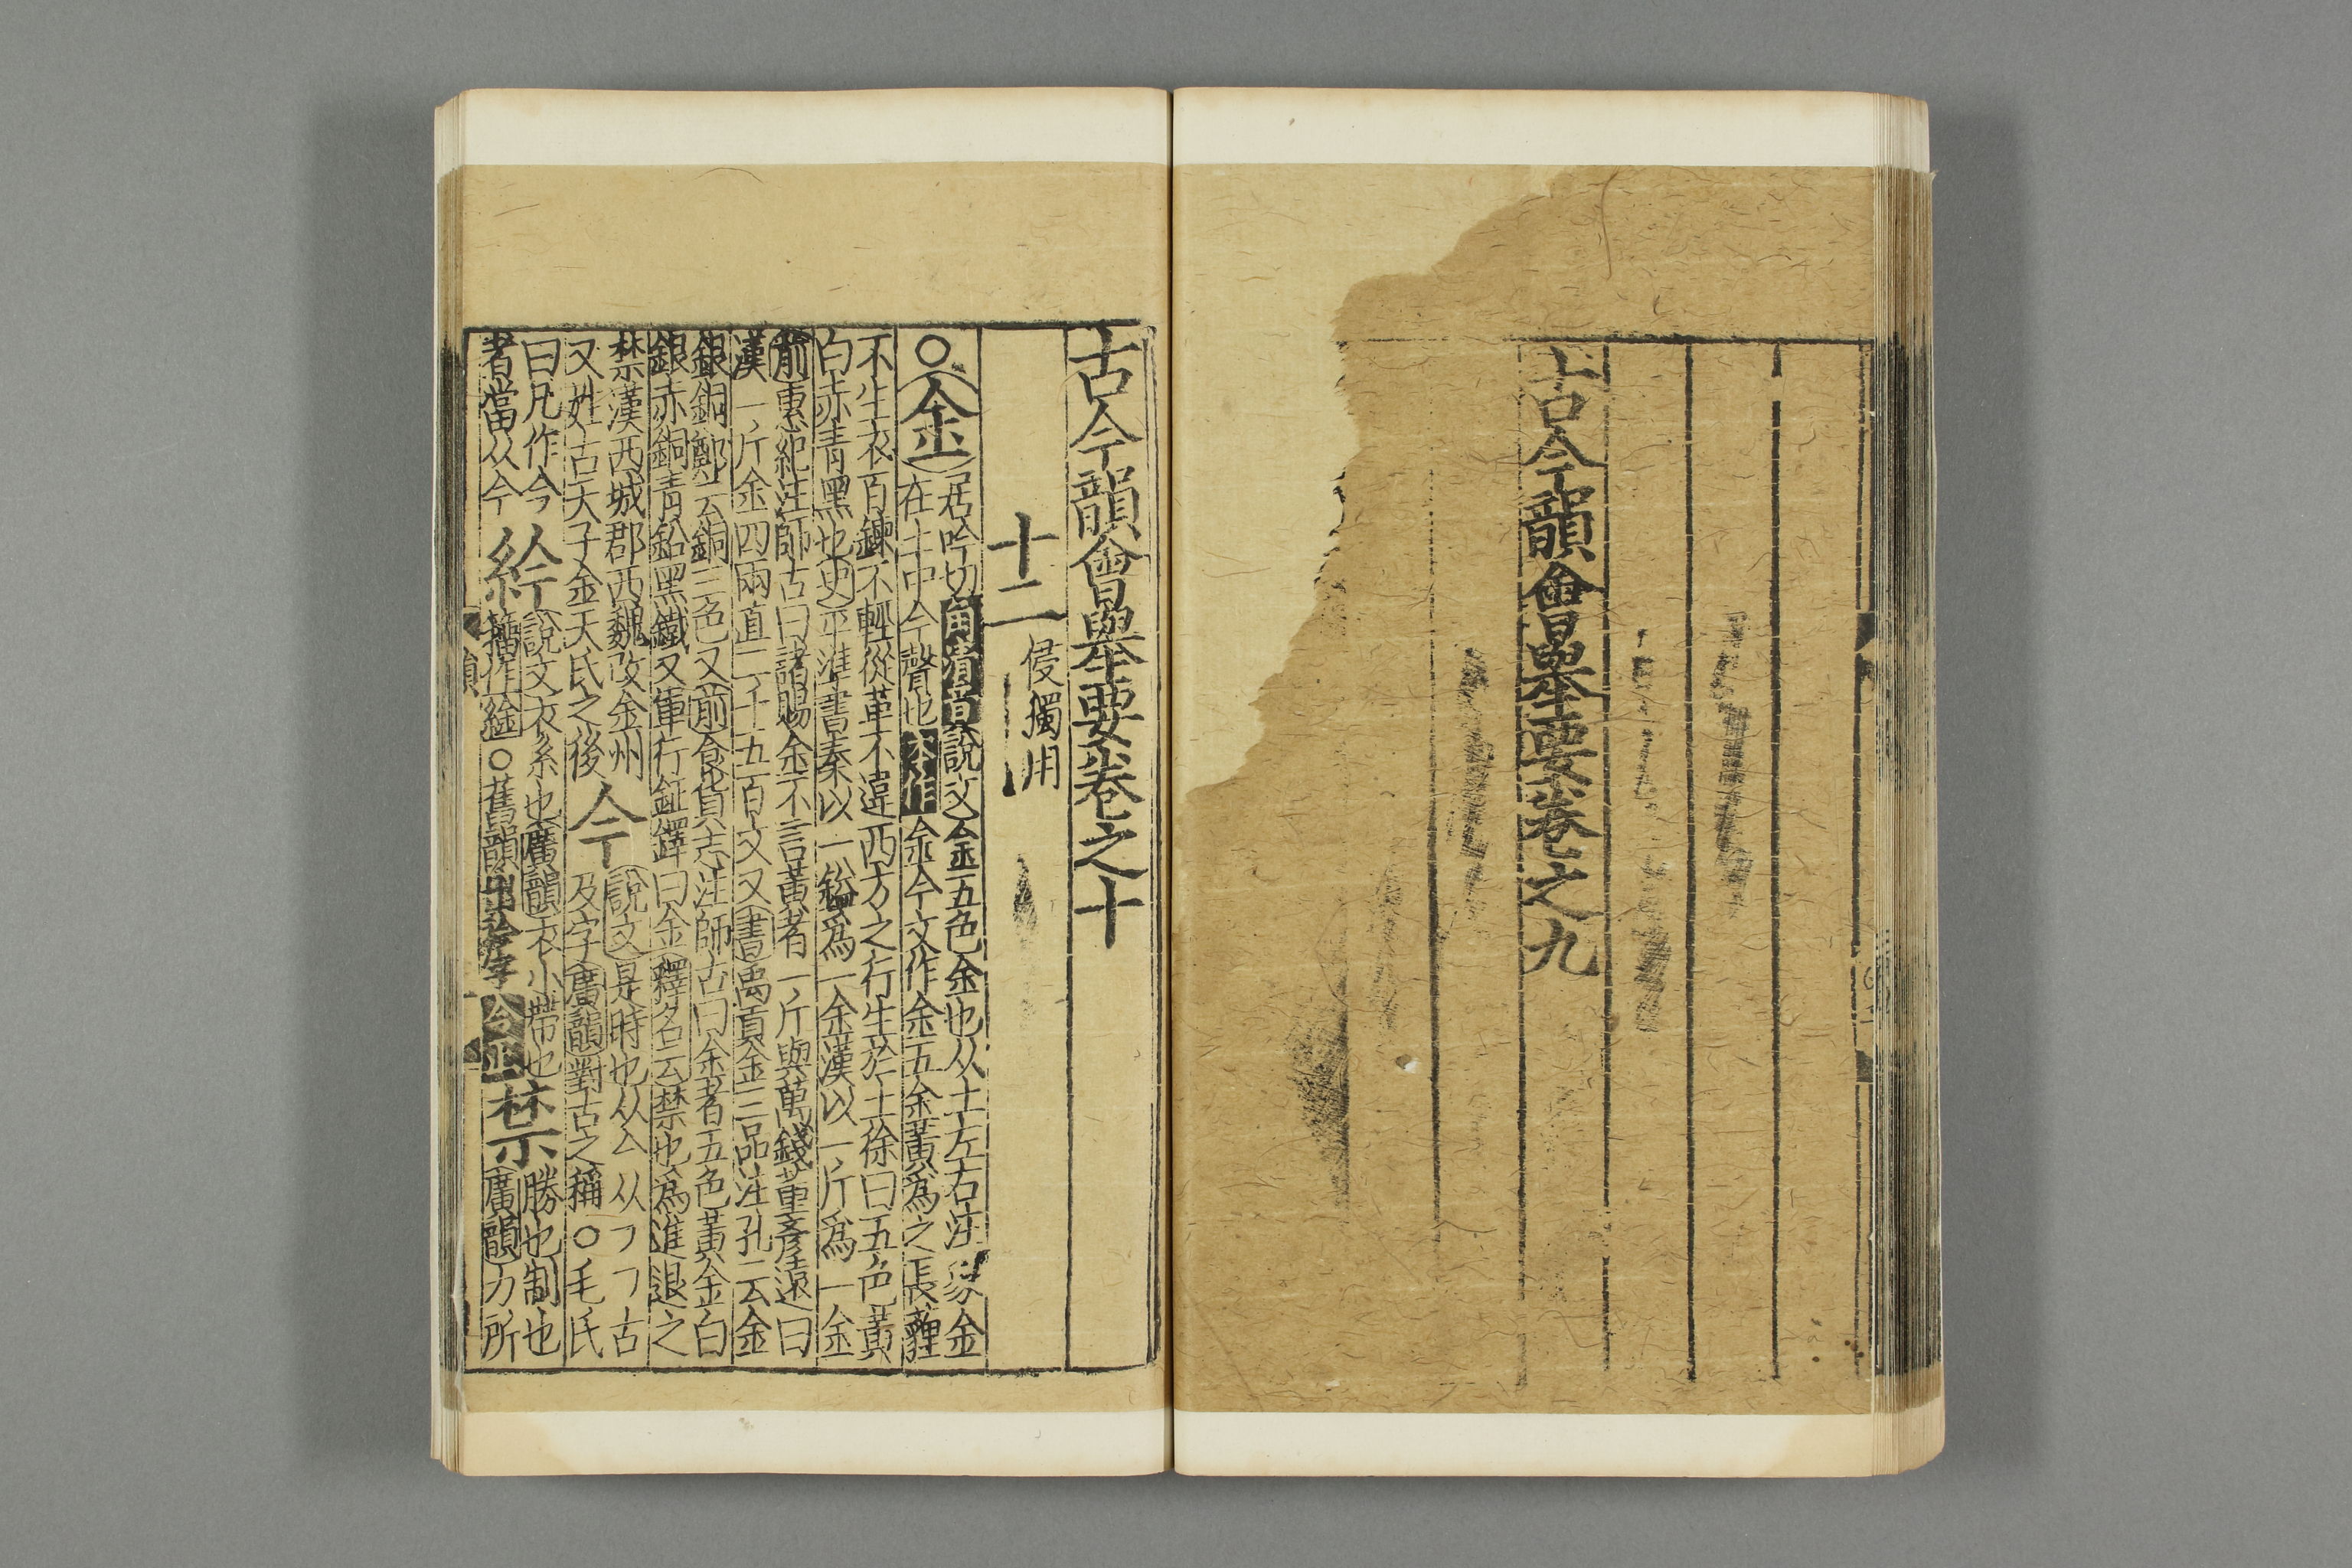 古今韻會舉要卷之九
古今韻會舉要卷之十
十二 侵獨用
○金 居吟切角清音說文金五色金也从土左右注象金
在土中今聲也本作金今文作金五金黃爲之長薶
不生衣百鍊不輕從革不違西方之行生於土徐曰五色黃
白赤青黑也史平準書秦以一鎰爲一金漢以一斤爲一金
前惠紀注師古曰諸賜金不言黃者一斤與萬錢董彥遠曰
漢一斤金四兩直二千五百文又書禹貢金三品注孔云金
銀銅鄭云銅三色又前食貨志注師古曰金者五色黃金白
銀赤銅青鉛黑鐵又軍行鉦鐸曰金釋名云禁也爲進退之
禁漢西城郡西魏改金州
又姓古天子金天氏之後
今 說文是時也从亼从㇇㇇古
及字廣韻對古之稱○毛氏
曰凡作今
者當从今
紟 說文衣系也廣韻衣小帶也
籀作䋮○舊韻出衿字今正
禁 勝也制也
廣韻力所